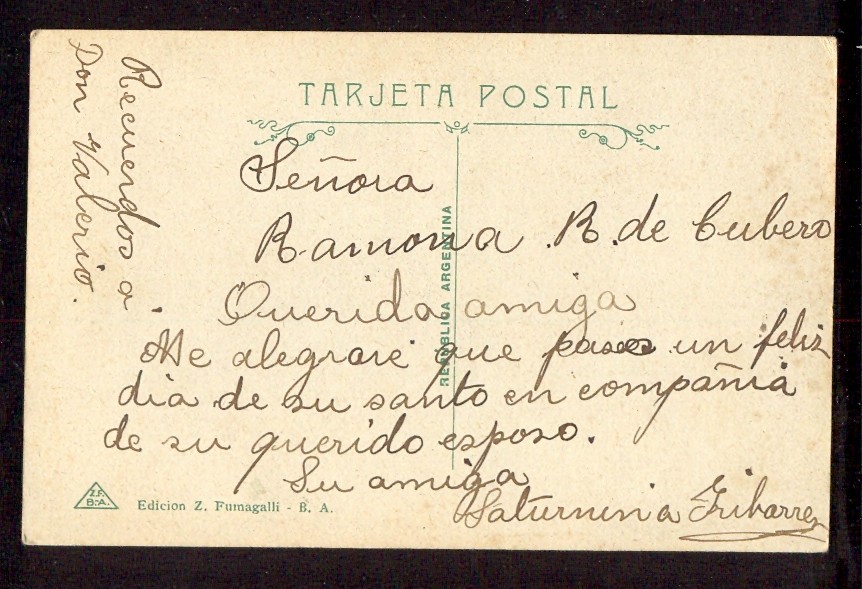 TARJETA POSTAL
REPUBLICA ARGENTINA
Recuerdos a
Don Valerio.
Señora
Ramona R. de Cubero
Querida amiga
Me alegraré que pase un feliz
dia de su santo en compañia
de su querido esposo.
Su amiga
Saturnina Iribarren
Z.F.
B.A.
Edicion Z. Fumagalli - B. A.